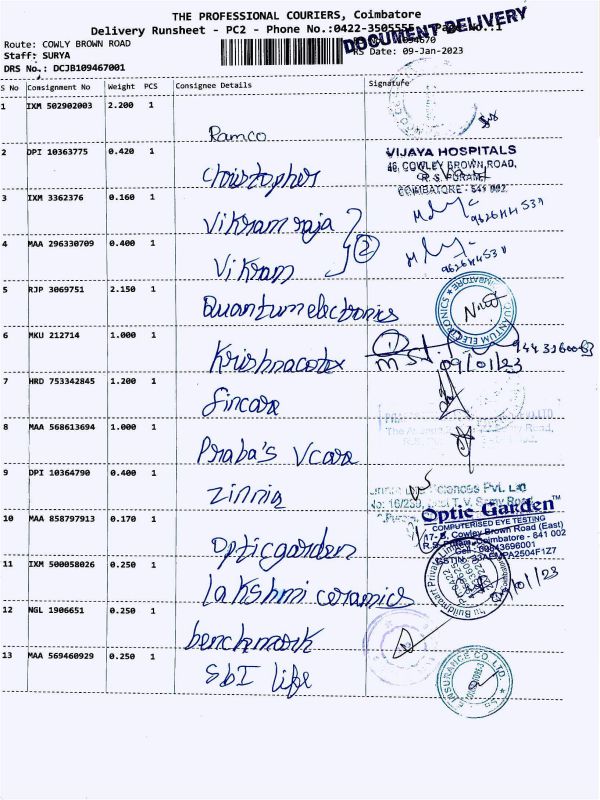 THE PROFESSIONAL COURIERS, Coimbatore
Delivery Runsheet - PC2 - Phone No.:0422-3505555
DOCUMENT DELIVERY
Route: COWLY BROWN ROAD
Staff: SURYA
RS Date: 09-Jan-2023
DRS No.: DCJB109467001
S No Consignment No Weight PCS Consignee Details Signature
1 IXM 502902003 2.200 1
Ramco
2 DPI 10363775 0.420 1
VIJAYA HOSPITALS
46, COWLEY BROWN ROAD,
R. S. PURAM,
COIMBATORE - 641 002
Christopher
3 IXM 3362376 0.160 1
Vikram raja
4 MAA 296330709 0.400 1
2
Vikram
5 RJP 3069751 2.150 1
Quantum electronics
QUANTUM ELECTRONICS
6 MKU 212714 1.000 1
09/01/23
Krishnacotex
7 HRD 753342845 1.200 1
Fincare
8 MAA 568613694 1.000 1
Praba's Vcare
9 DPI 10364790 0.400 1
Zinnia
10 MAA 858797913 0.170 1
Optic Garden™
COMPUTERISED EYE TESTING
17- B, Cowley Brown Road (East)
R.S. Puram, Coimbatore - 641 002
Opticgarden
11 IXM 500058026 0.250 1
Lakshmi ceramics
12 NGL 1906651 0.250 1
benchmark
13 MAA 569460929 0.250 1
SbI life
INSURANCE CO. LTD.